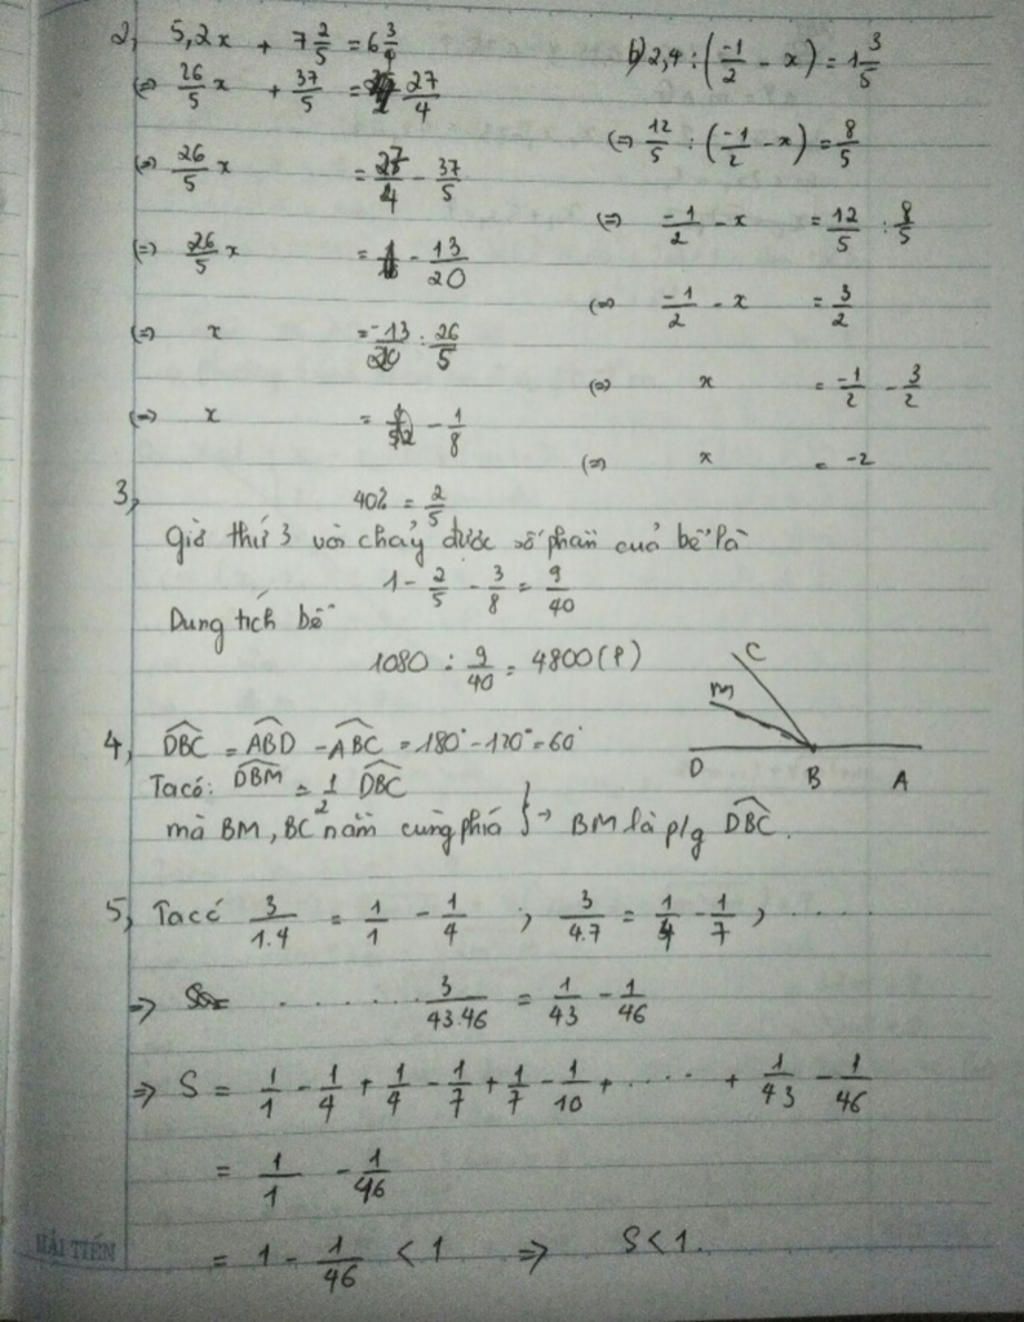 2, 5,2x + 7 2/5 = 6 3/4
(=) 26/5 x + 37/5 = 27/4
(=) 26/5 x = 27/4 - 37/5
(=) 26/5 x = - 13/20
(=) x = -13/20 : 26/5
(=) x = - 1/8
b) 2,4 : (-1/2 - x) = 1 3/5
(=) 12/5 : (-1/2 - x) = 8/5
(=) -1/2 - x = 12/5 : 8/5
(=) -1/2 - x = 3/2
(=) x = -1/2 - 3/2
(=) x = -2
3, 40% = 2/5
Giờ thứ 3 vòi chảy được số phần của bể là
1 - 2/5 - 3/8 = 9/40
Dung tích bể
1080 : 9/40 = 4800 (l)
C
m
D B A
4, DBC = ABD - ABC = 180° - 120° = 60°
Ta có: DBM = 1/2 DBC
mà BM, BC nằm cùng phía } → BM là p/g DBC.
5, Ta có 3/1.4 = 1/1 - 1/4 ; 3/4.7 = 1/4 - 1/7 , ......
=> ........ 3/43.46 = 1/43 - 1/46
=> S = 1/1 - 1/4 + 1/4 - 1/7 + 1/7 - 1/10 + ..... + 1/43 - 1/46
= 1/1 - 1/46
= 1 - 1/46 < 1 => S < 1.
HẢI TIẾN